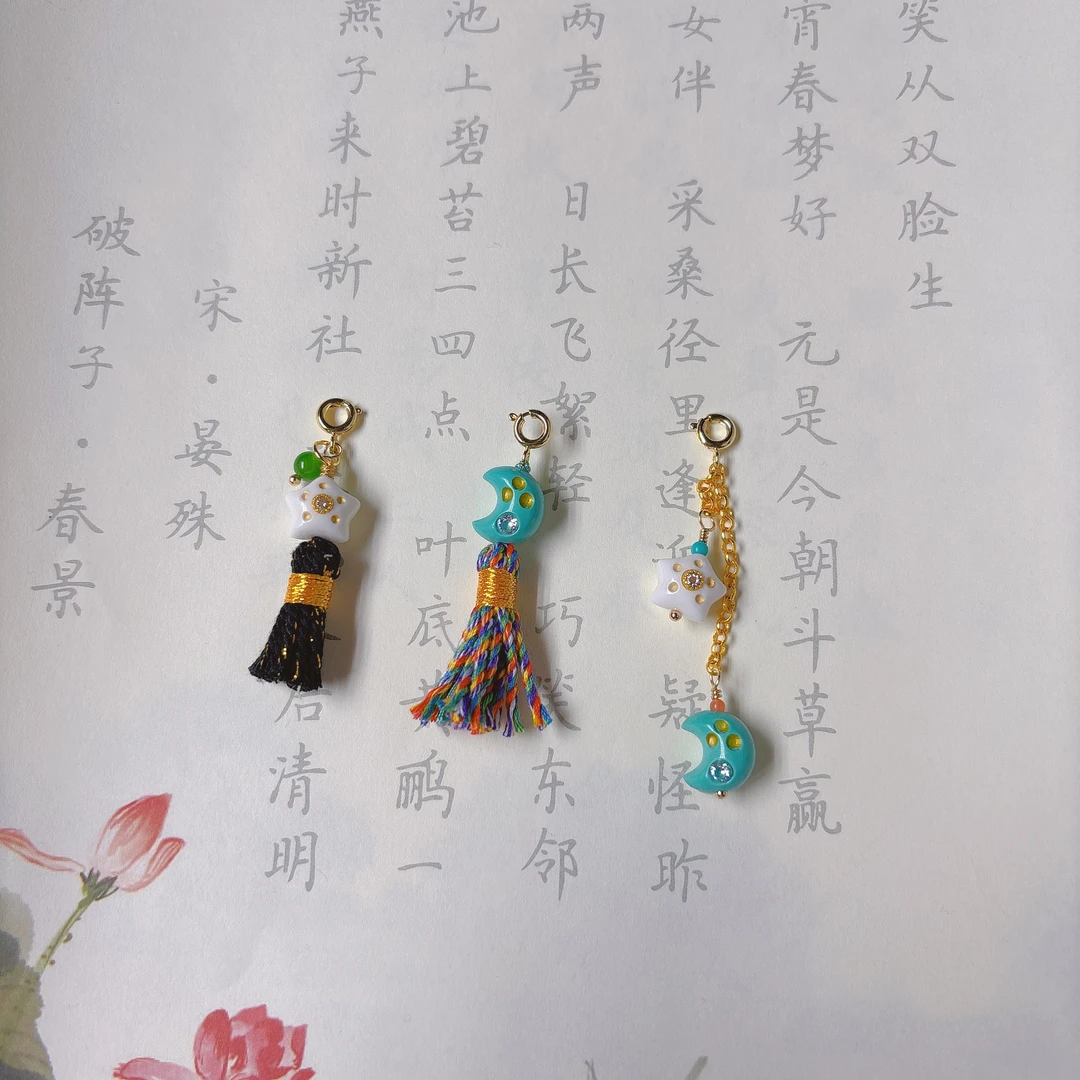 破阵子·春景
宋·晏殊
燕子来时新社 后清明
池上碧苔三四点 叶底黄鹂一
两声 日长飞絮轻 巧笑东邻
女伴 采桑径里逢迎 疑怪昨
宵春梦好 元是今朝斗草赢
笑从双脸生